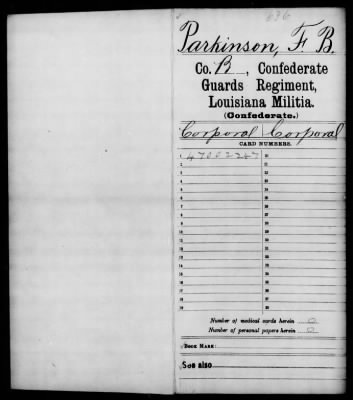 636
Parkinson, F. B.
Co. B, Confederate
Guards Regiment,
Louisiana Militia.
(Confederate.)
Corporal Corporal
CARD NUMBERS.
1 47002247 20
2 21
3 22
4 23
5 24
6 25
7 26
8 27
9 28
10 29
11 30
12 31
13 32
14 33
15 34
16 35
17 36
18 37
19 38
Number of medical cards herein 0
Number of personal papers herein 0
BOOK MARK:
See also